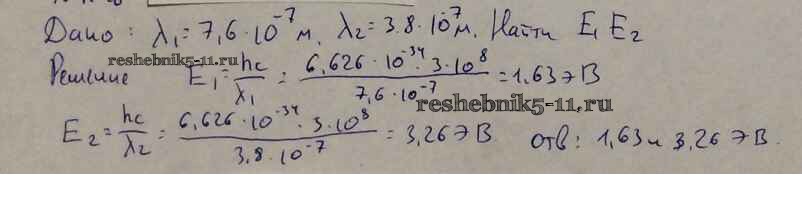 Дано: λ₁=7,6·10⁻⁷м. λ₂=3.8·10⁻⁷м. Найти E₁ E₂
reshebnik5-11.ru
Решение E₁=hc/λ₁=6,626·10⁻³⁴·3·10⁸/7,6·10⁻⁷=1,63эВ
reshebnik5-11.ru
E₂=hc/λ₂=6,626·10⁻³⁴·3·10⁸/3,8·10⁻⁷=3,26эВ отв: 1,63 и 3,26 эВ.